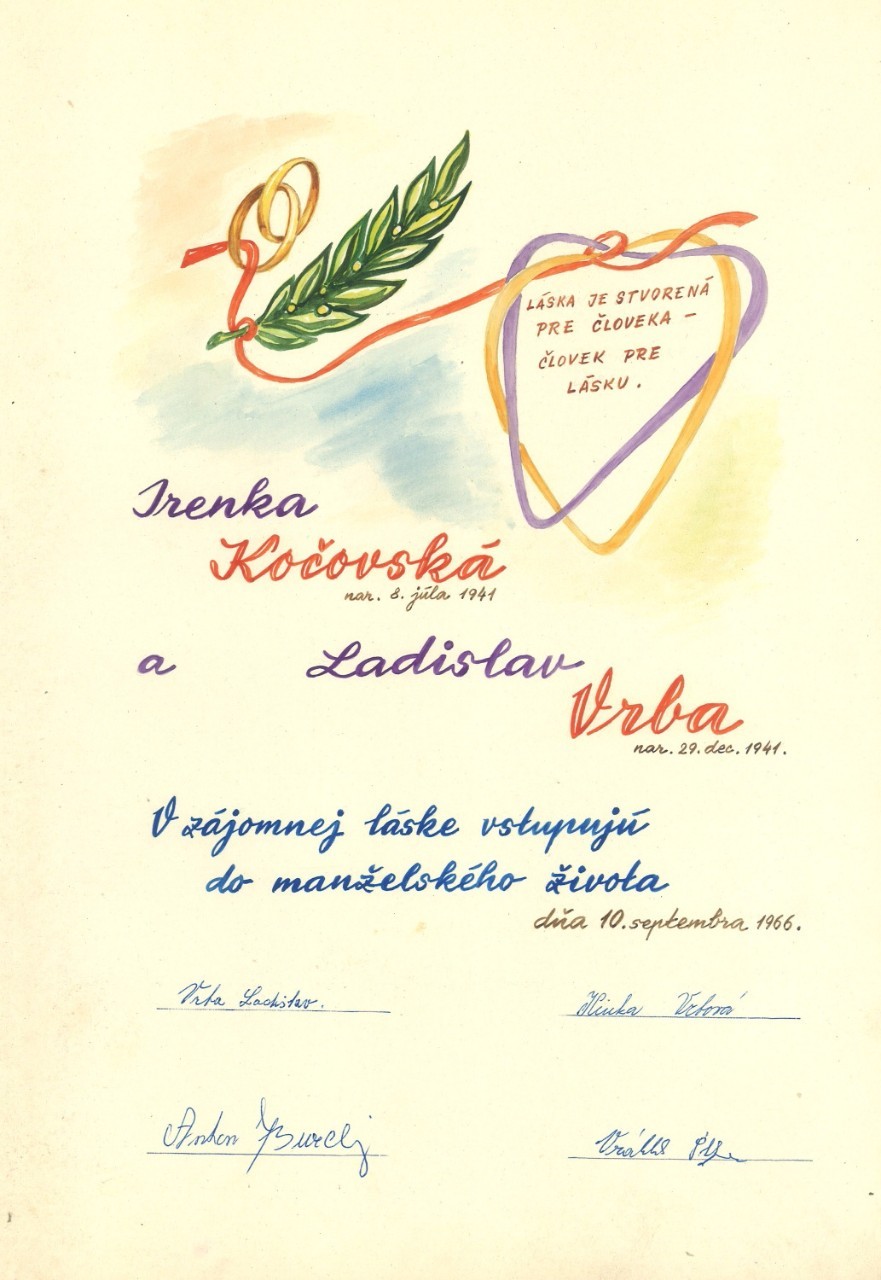 LÁSKA JE STVORENÁ
PRE ČLOVEKA -
ČLOVEK PRE
LÁSKU.
Irenka
Kočovská
nar. 8. júla 1941
a Ladislav
Vrba
nar. 29. dec. 1941.
V zájomnej láske vstupujú
do manželského života
dňa 10. septembra 1966.
Vrba Ladislav.
Vrbová
Anton